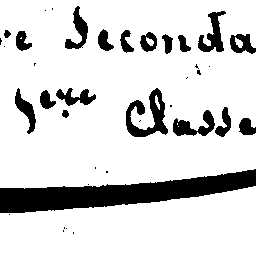 re Seconda
1ere Classe